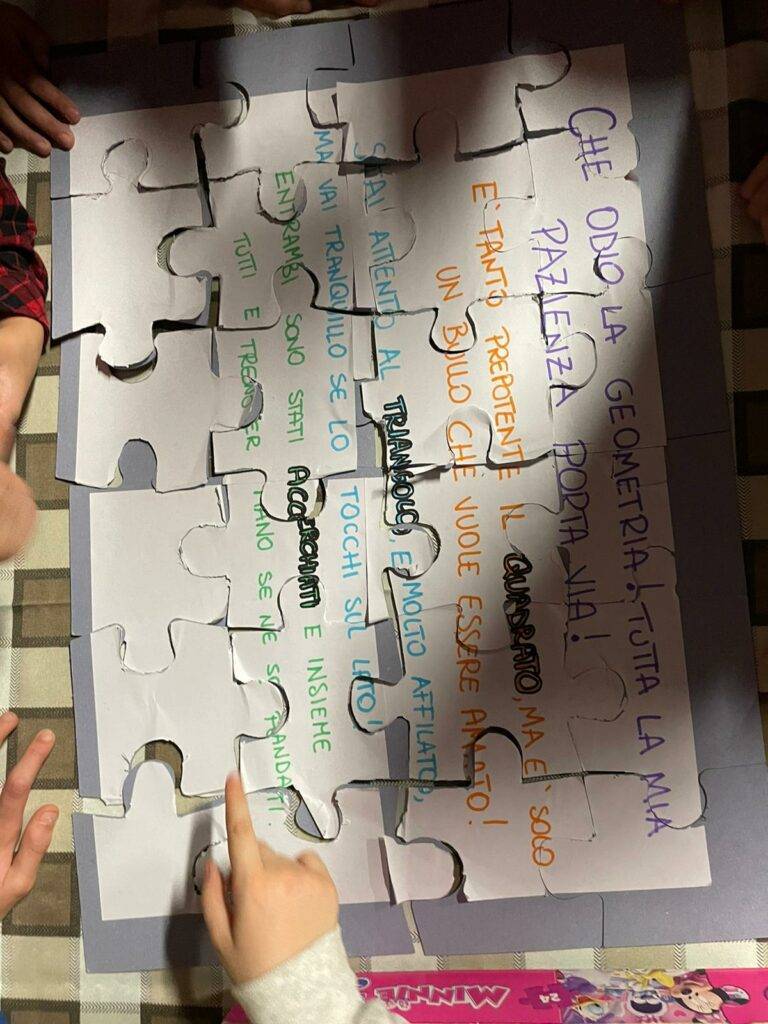 CHE ODIO LA GEOMETRIA! TUTTA LA MIA
PAZIENZA PORTA VIA!
E' TANTO PREPOTENTE IL QUADRATO, MA E' SOLO
UN BULLO CHE VUOLE ESSERE AMATO!
STAI ATTENTO AL TRIANGOLO, E' MOLTO AFFILATO,
MA VAI TRANQUILLO SE LO TOCCHI SUL LATO!
ENTRAMBI SONO STATI ACCERCHIATI E INSIEME
TUTTI E TRE MANO SE NE SO ANDATI.
MINNIE
24